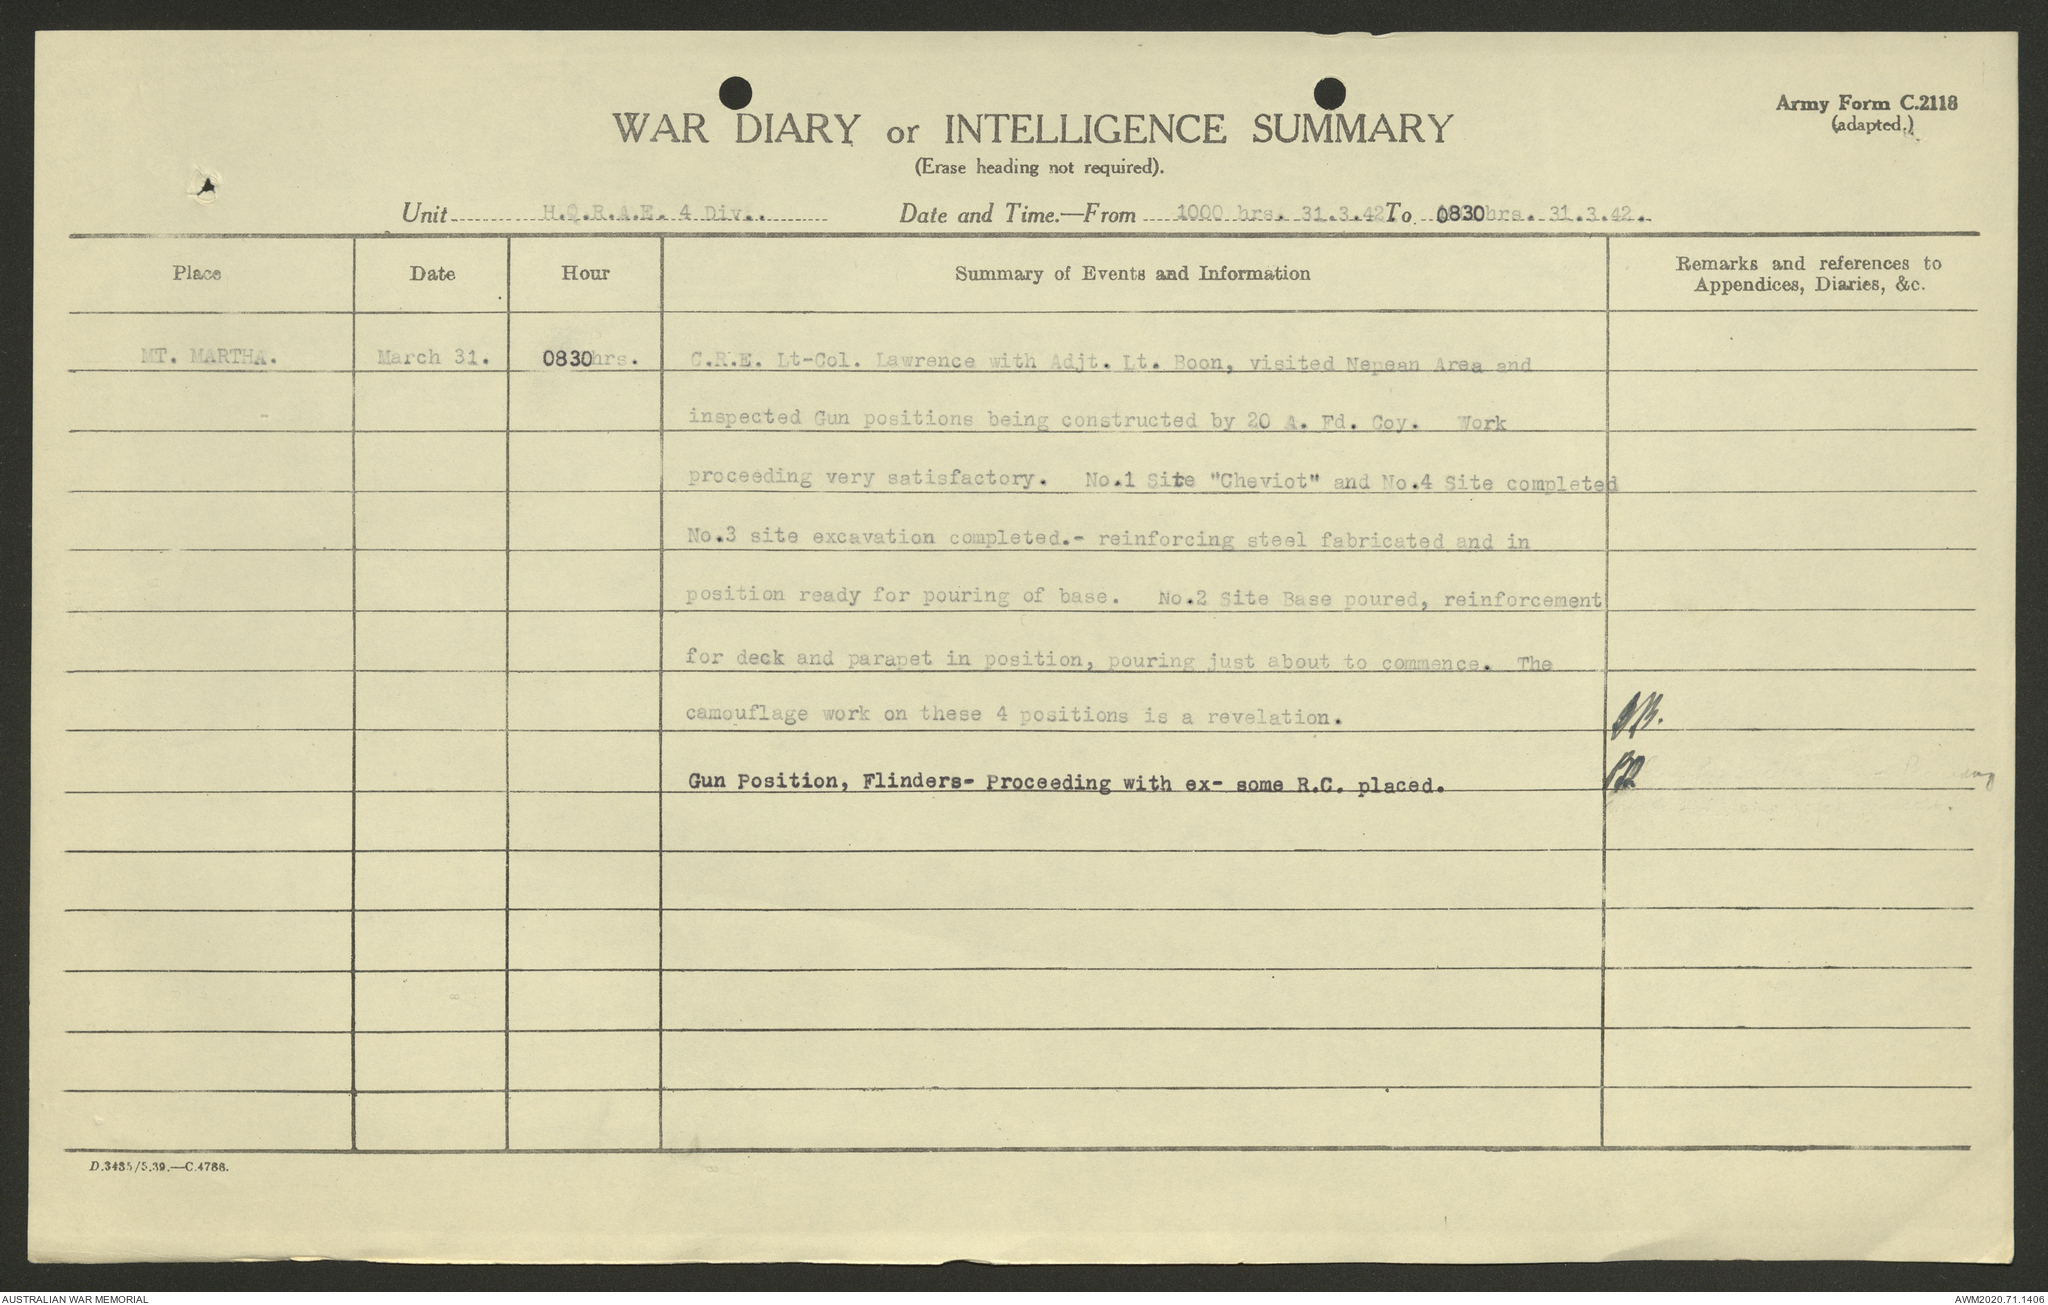 Army Form C.2118
(adapted.)
WAR DIARY or INTELLIGENCE SUMMARY
(Erase heading not required).
Unit H.Q.R.A.E. 4 Div. Date and Time.—From 1000 hrs. 31.3.42 To 0830 hrs. 31.3.42.
Place Date Hour Summary of Events and Information Remarks and references to
Appendices, Diaries, &c.
MT. MARTHA. March 31. 0830 hrs. C.R.E. Lt-Col. Lawrence with Adjt. Lt. Boon, visited Nepean Area and
inspected Gun positions being constructed by 20 A. Fd. Coy. Work
proceeding very satisfactory. No.1 Site "Cheviot" and No.4 Site completed
No.3 site excavation completed.- reinforcing steel fabricated and in
position ready for pouring of base. No.2 Site Base poured, reinforcement
for deck and parapet in position, pouring just about to commence. The
camouflage work on these 4 positions is a revelation.
Gun Position, Flinders- Proceeding with ex- some R.C. placed.
D.3435/5.39.—C.4788.
AUSTRALIAN WAR MEMORIAL AWM2020.71.1406